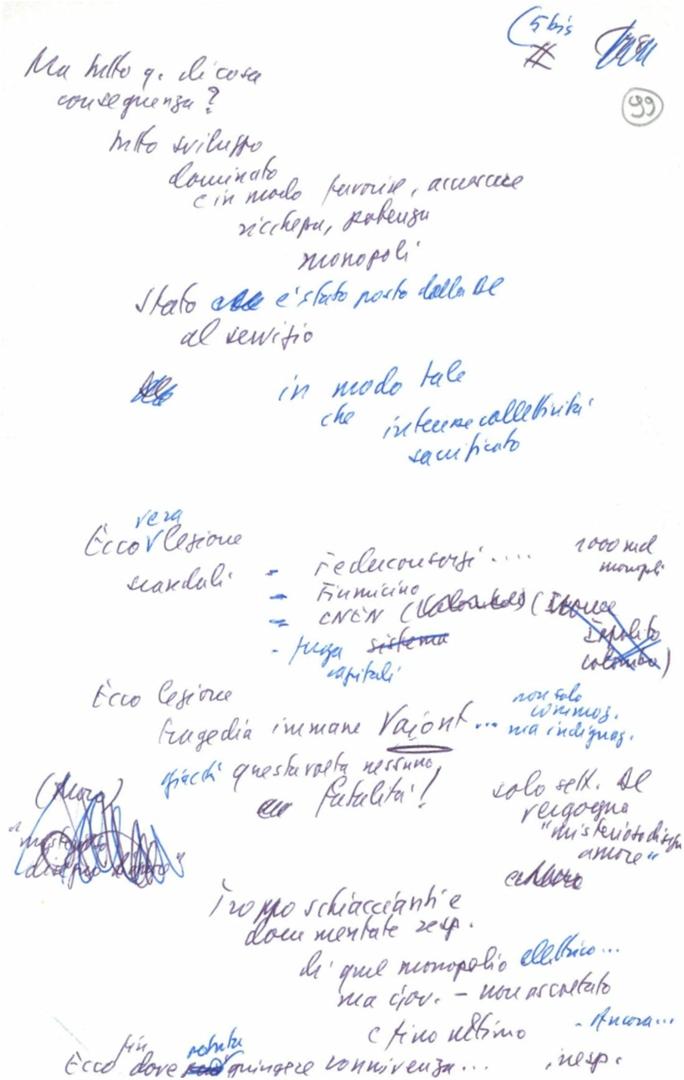 (5 bis
99
Ma tutto q. di cosa
conseguenza?
tutto sviluppo
dominato
e in modo favorire, accrescere
ricchezza, potenza
monopoli
Stato è stato posto dalla DC
al servizio
in modo tale
che interesse collettività
sacrificato
vera
Ecco V lezione
scandali
- Federconsorzi .... 1000 md
monopoli
- Fiumicino
- CNEN (
Ippolito
Colombo)
- fuga sistema
capitali
Ecco lezione
tragedia immane Vajont ... non solo
commoz.
ma indignaz.
giacché questa volta nessuna
fatalità!
solo sett. DC
vergogna
"misterioso disegno
amore"
(Moro)
Troppo schiaccianti e
documentate resp.
di quel monopolio elettrico...
ma gov. - non ascoltato
e fino ultimo - Ancora...
fin potuta
Ecco dove giungere connivenza... irresp.